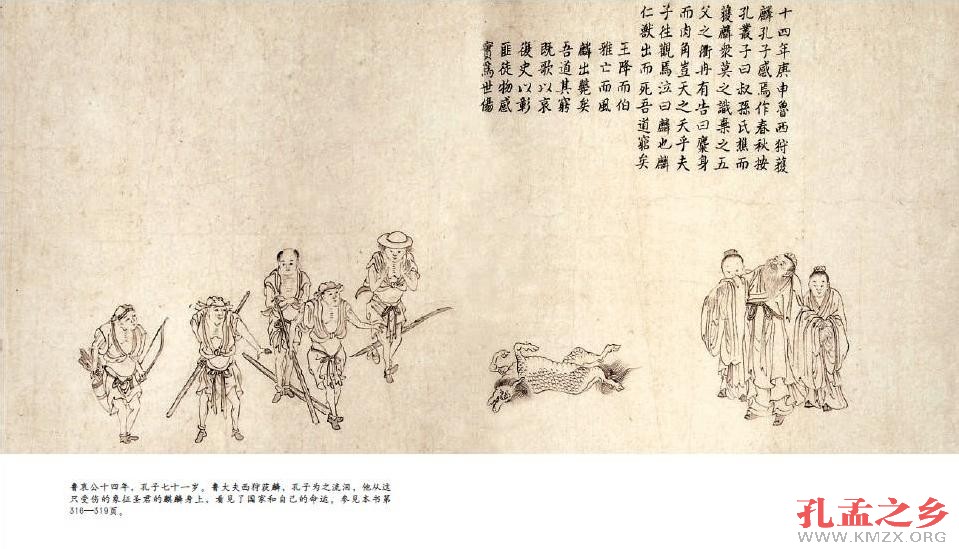 十四年庚申魯西狩獲
麟孔子感焉作春秋按
孔叢子曰叔孫氏樵而
獲麟衆莫之識棄之五
父之衢冉有告曰麇身
而肉角豈天之夭乎夫
子往觀焉泣曰麟也麟
仁獸出而死吾道窮矣
王降而伯
雅亡而風
麟出斃矣
吾道其窮
既歌以哀
復史以彰
匪徒物感
實爲世傷
鲁哀公十四年，孔子七十一岁。鲁大夫西狩获麟，孔子为之流泪，他从这
只受伤的象征圣君的麒麟身上，看见了国家和自己的命运。参见本书第
316—319页。
孔孟之乡
WWW.KMZX.ORG